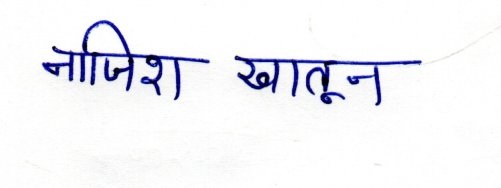 नाजिश खातून